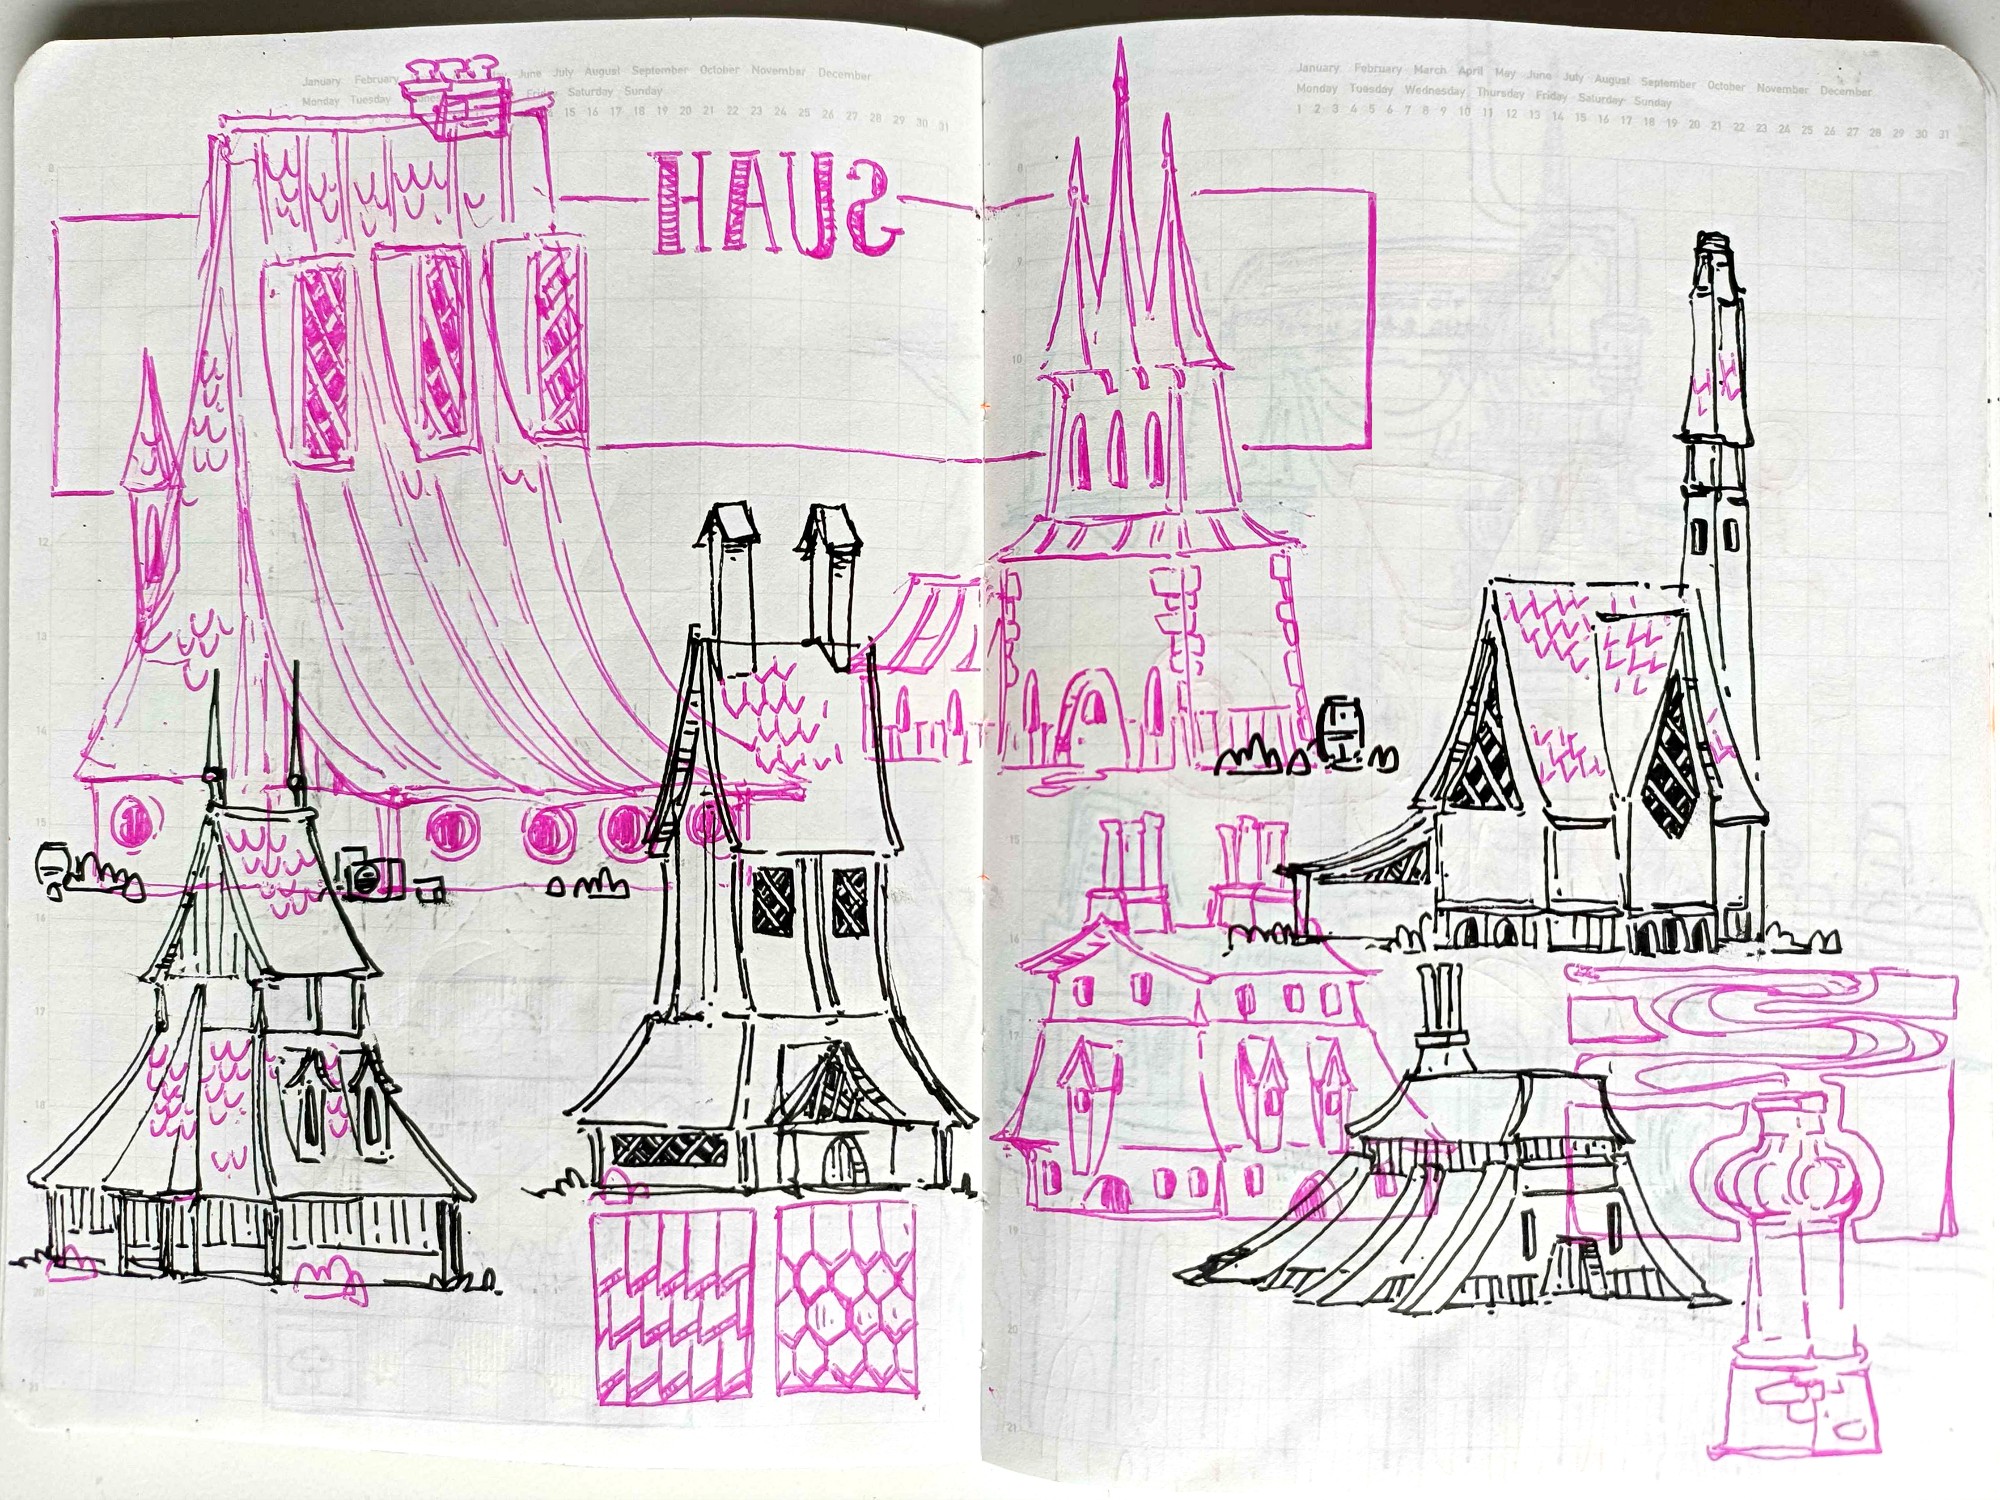 January February June July August September October November December
Monday Tuesday Friday Saturday Sunday
15 16 17 18 19 20 21 22 23 24 25 26 27 28 29 30 31
8
HAUS
9
12
13
14
15
16
17
18
20
21
January February March April May June July August September October November December
Monday Tuesday Wednesday Thursday Friday Saturday Sunday
1 2 3 4 5 6 7 8 9 10 11 12 13 14 15 16 17 18 19 20 21 22 23 24 25 26 27 28 29 30 31
8
9
10
12
15
16
17
19
20
21